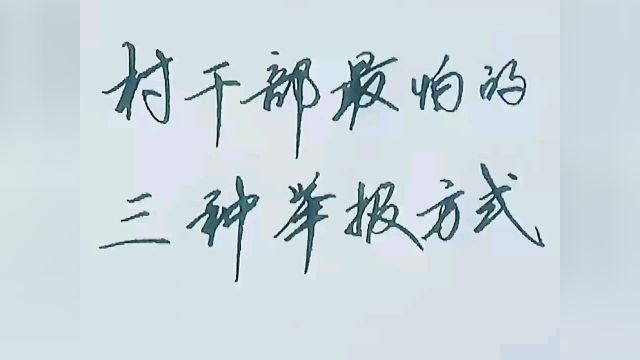 村干部最怕的
三种举报方式